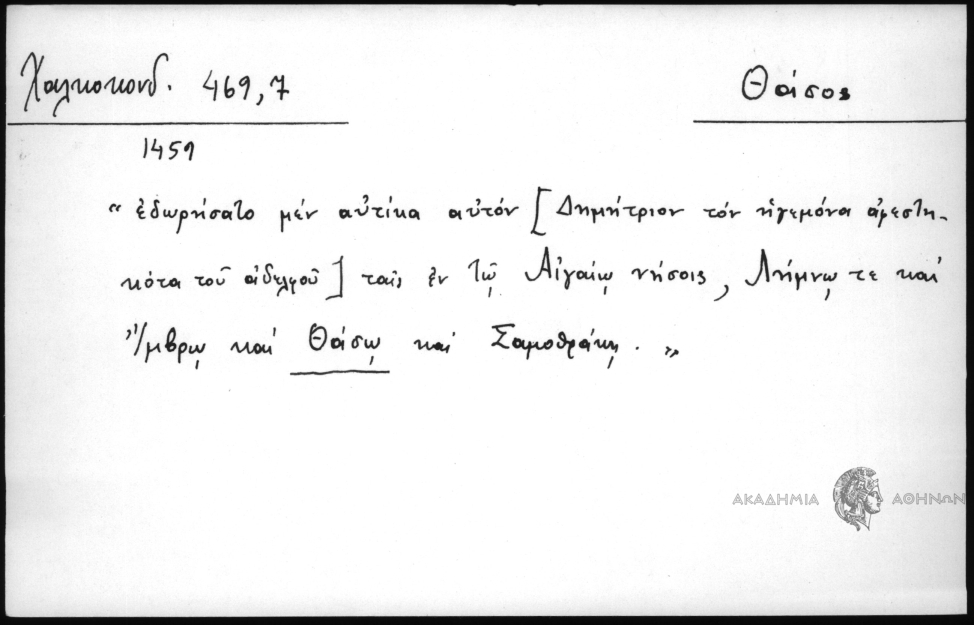 Χαλκοκονδ. 469,7
Θάσος
1459
“ ἐδωρήσατο μέν αὐτίκα αὐτόν [Δημήτριον τόν ἡγεμόνα ἀφεστη-
κότα τοῦ ἀδελφοῦ] ταῖς ἐν τῷ Αἰγαίῳ νήσοις, Λήμνῳ τε καί
Ἴμβρῳ καί Θάσῳ καί Σαμοθράκῃ. ”
ΑΚΑΔΗΜΙΑ ΑΘΗΝΩΝ